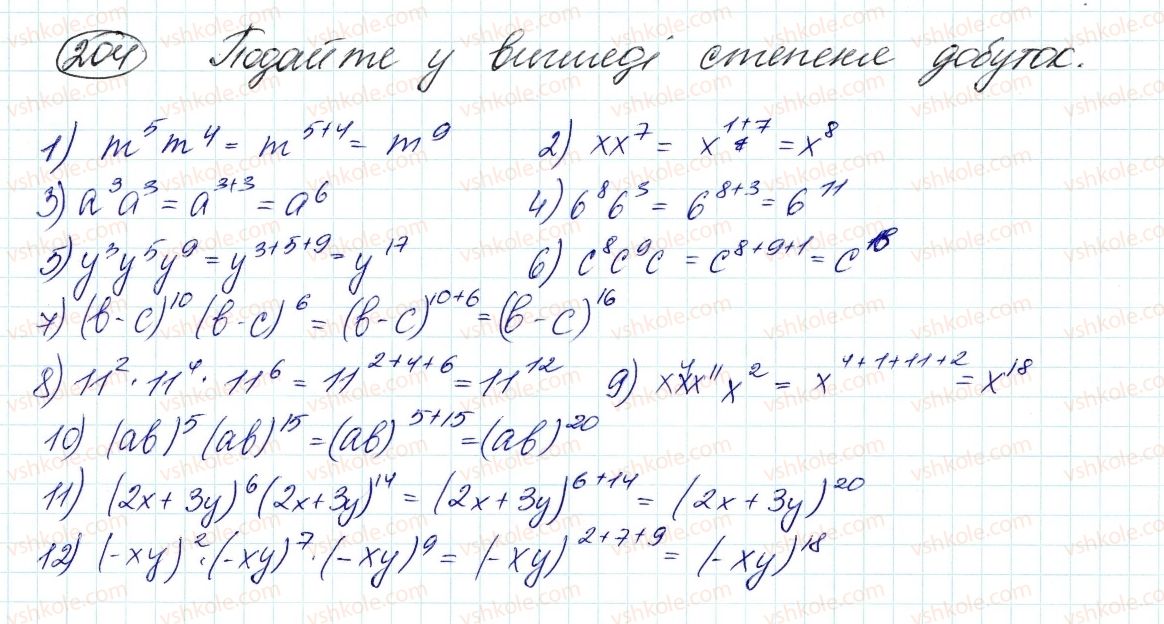 204 Подайте у вигляді степеня добуток.
1) m⁵m⁴ = m⁵⁺⁴ = m⁹ 2) xx⁷ = x¹⁺⁷ = x⁸
3) a³a³ = a³⁺³ = a⁶ 4) 6⁸6³ = 6⁸⁺³ = 6¹¹
5) y³y⁵y⁹ = y³⁺⁵⁺⁹ = y¹⁷ 6) c⁸c⁹c = c⁸⁺⁹⁺¹ = c¹⁸
7) (b-c)¹⁰(b-c)⁶ = (b-c)¹⁰⁺⁶ = (b-c)¹⁶
8) 11²·11⁴·11⁶ = 11²⁺⁴⁺⁶ = 11¹² 9) x⁴xx¹¹x² = x⁴⁺¹⁺¹¹⁺² = x¹⁸
10) (ab)⁵(ab)¹⁵ = (ab)⁵⁺¹⁵ = (ab)²⁰
11) (2x+3y)⁶(2x+3y)¹⁴ = (2x+3y)⁶⁺¹⁴ = (2x+3y)²⁰
12) (-xy)²·(-xy)⁷·(-xy)⁹ = (-xy)²⁺⁷⁺⁹ = (-xy)¹⁸
vshkole.com